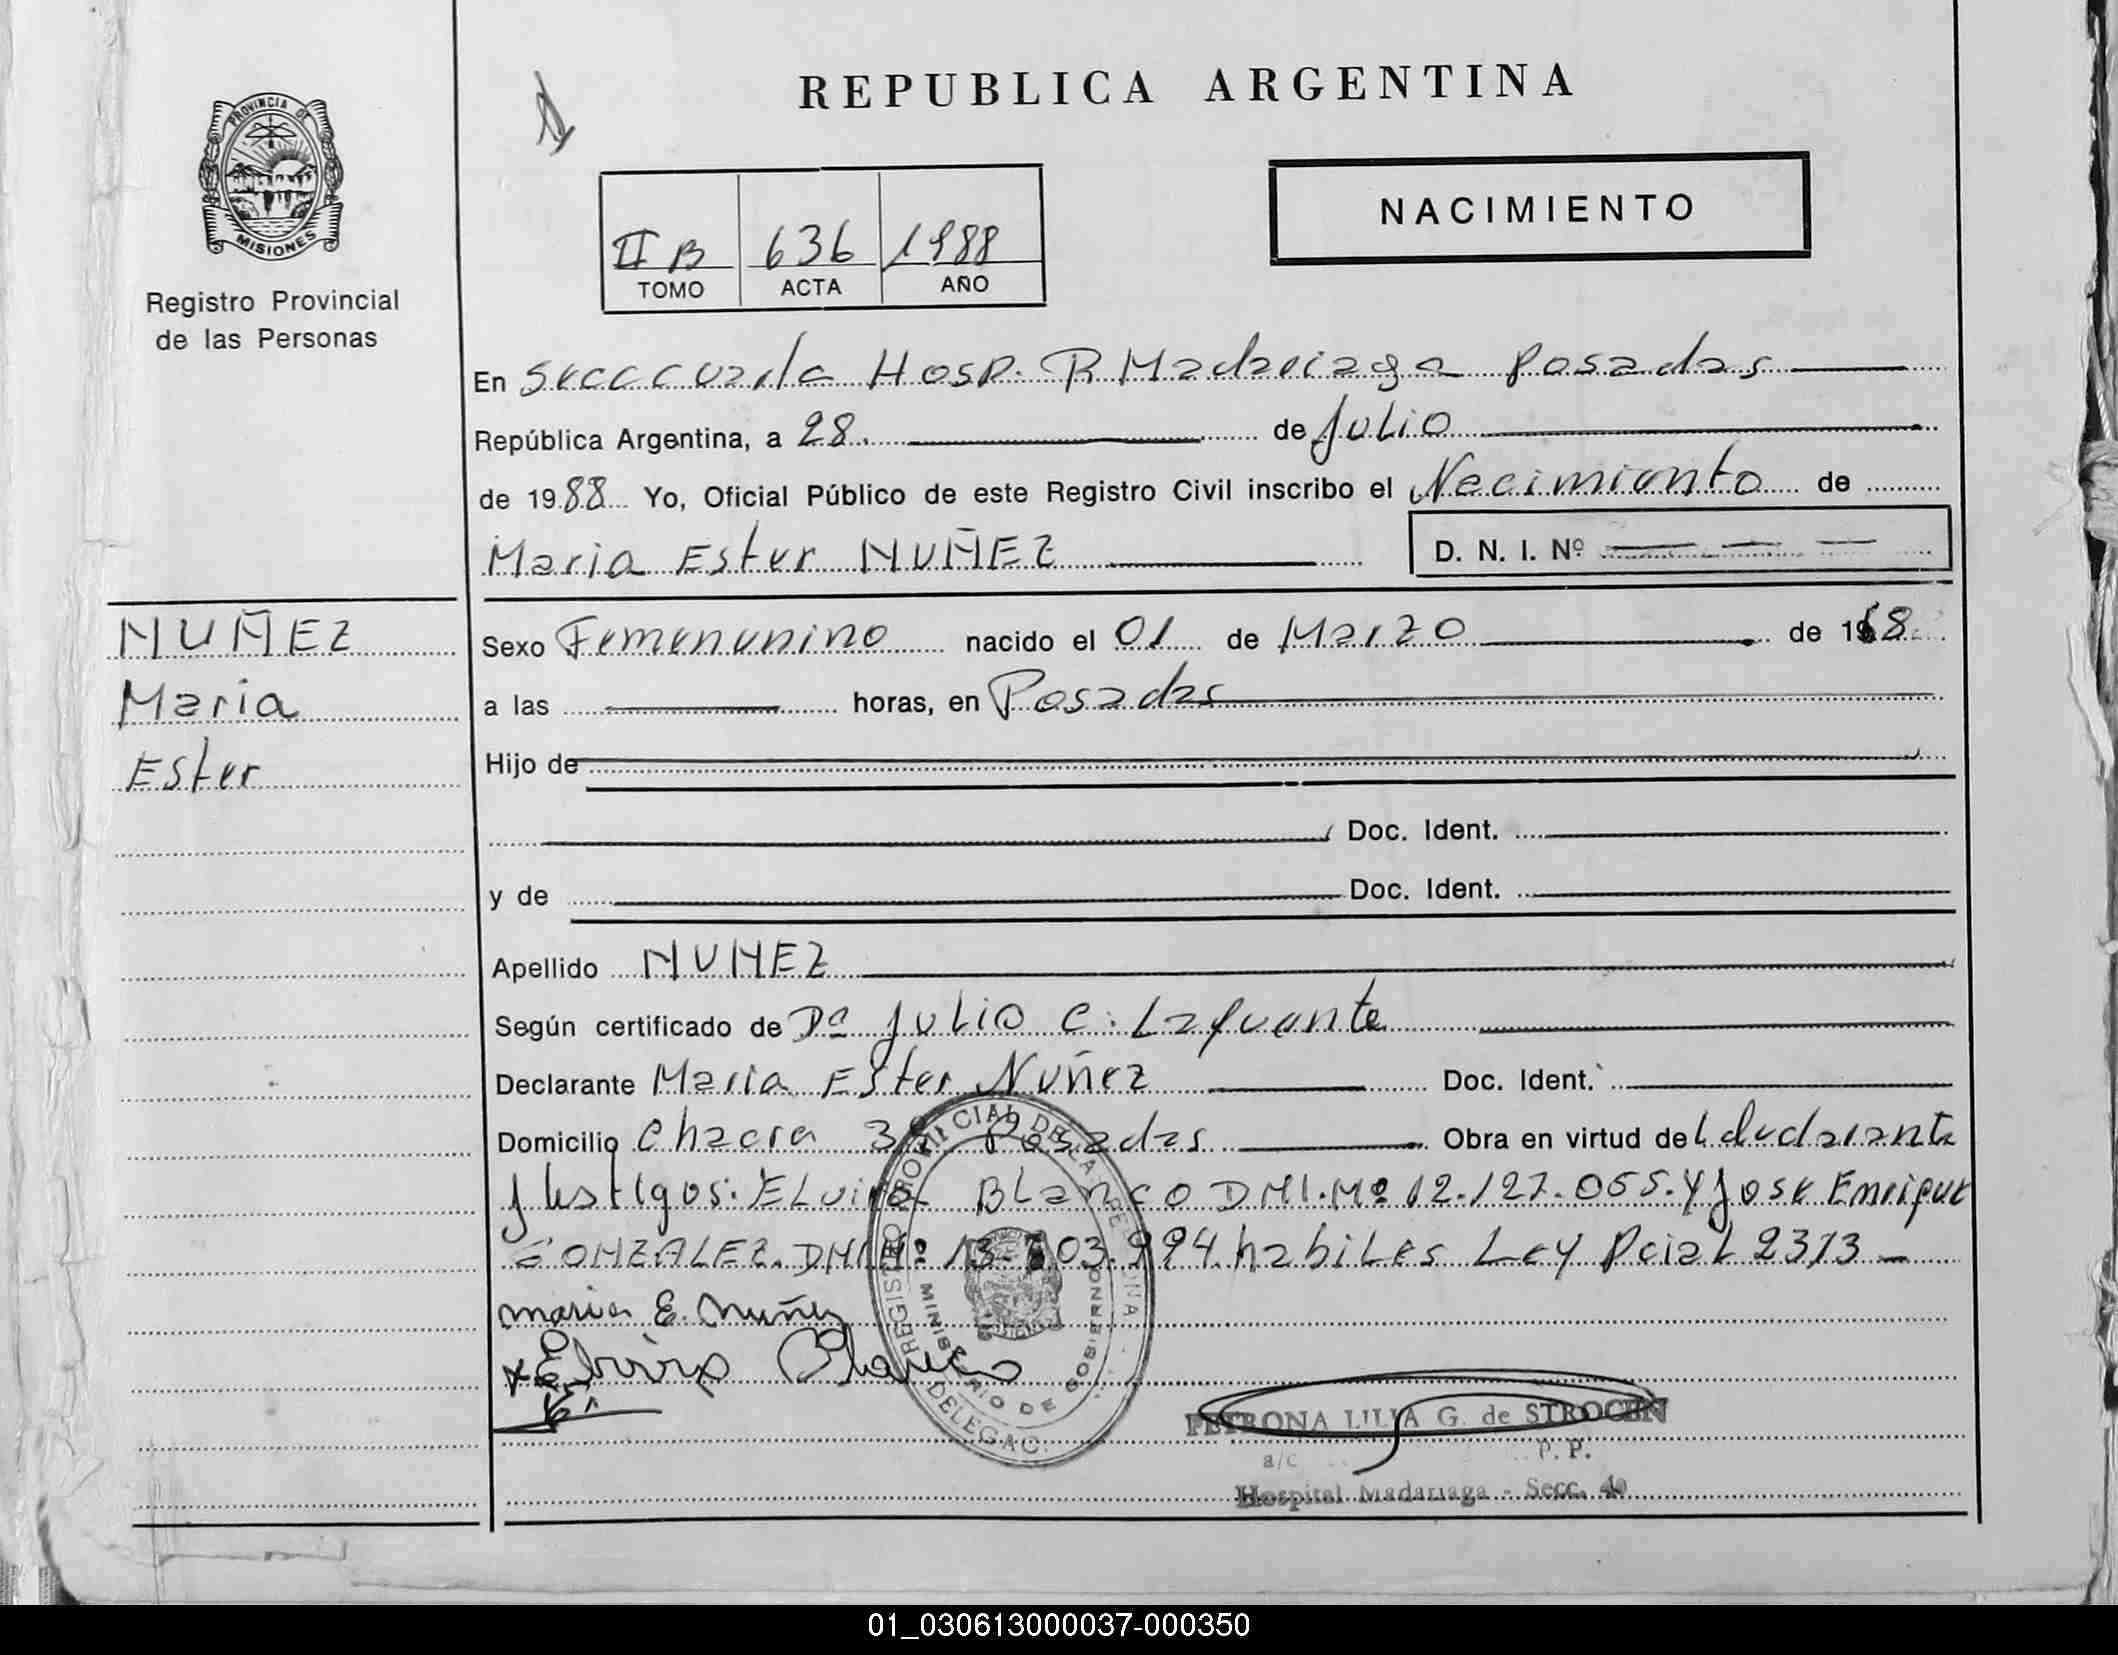 REPUBLICA ARGENTINA
PROVINCIA DE
MISIONES
Registro Provincial
de las Personas
NACIMIENTO
II B 636 1988
TOMO ACTA AÑO
En Secc cuarta Hosp. R Madariaga Posadas
República Argentina, a 28. de Julio
de 1988 Yo, Oficial Público de este Registro Civil inscribo el Nacimiento de
Maria Ester NUÑEZ D. N. I. Nº
NUÑEZ
Maria
Ester
Sexo Femenunino nacido el 01 de Marzo de 1968
a las horas, en Posadas
Hijo de
Doc. Ident.
y de Doc. Ident.
Apellido NUNEZ
Según certificado de Dª Julio C. Lafuante
Declarante Maria Ester Nuñez Doc. Ident.
Domicilio Chacra Posadas Obra en virtud de L declarante
Testigos: ELvira BLanco DNI.Nº 12.127.055. Y Jose Enrique
GONZALEZ. DNI Nº 13. 03.994. habiles Ley Pcial 2313
Maria E. Nuñez
x Elvira Blanco
REGISTRO PROVINCIAL DE LAS PERSONAS
MINISTERIO DE GOBIERNO
DELEGAC.
PETRONA LILIA G. de STROCEN
a/c P. P.
Hospital Madariaga - Secc. 4º
01_030613000037-000350